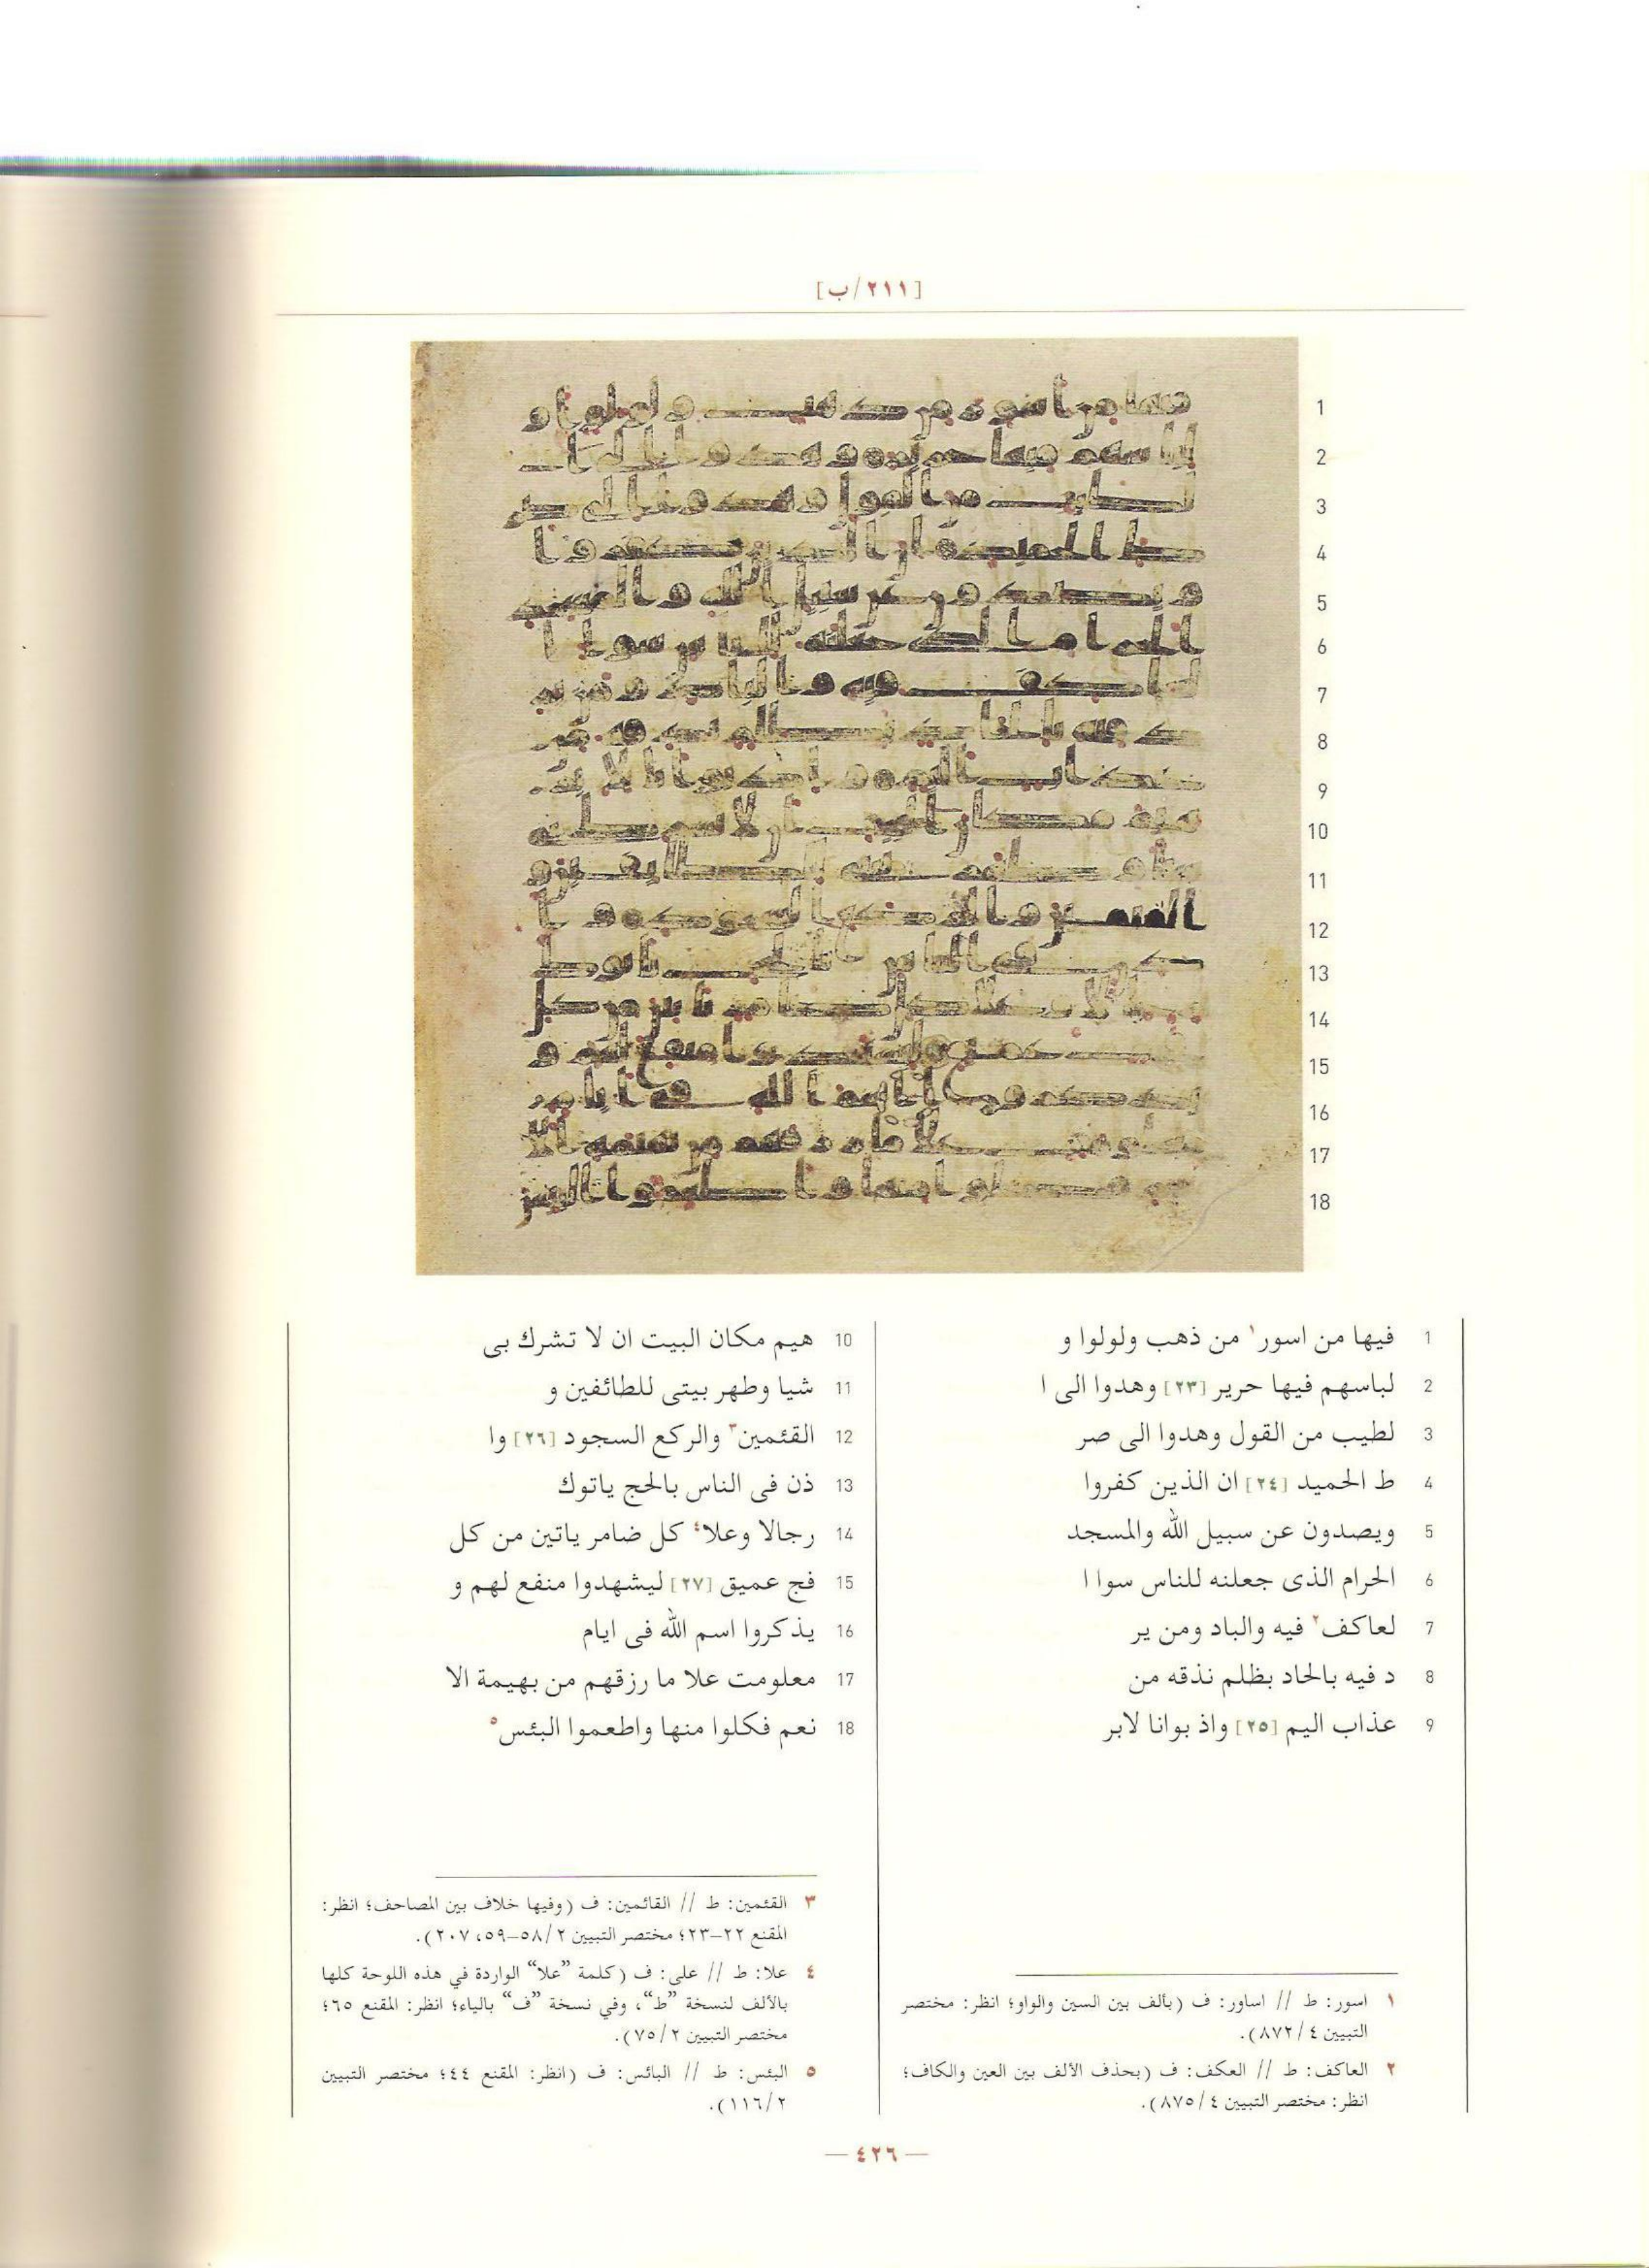 [٢١١/ب]
1
2
3
4
5
6
7
8
9
10
11
12
13
14
15
16
17
18
1 فيها من اسور١ من ذهب ولولوا و
2 لباسهم فيها حرير [٢٣] وهدوا الى ا
3 لطيب من القول وهدوا الى صر
4 ط الحميد [٢٤] ان الذين كفروا
5 ويصدون عن سبيل الله والمسجد
6 الحرام الذى جعلنه للناس سوا ا
7 لعاكف٢ فيه والباد ومن ير
8 د فيه بالحاد بظلم نذقه من
9 عذاب اليم [٢٥] واذ بوانا لابر
10 هيم مكان البيت ان لا تشرك بى
11 شيا وطهر بيتى للطائفين و
12 القئمين٣ والركع السجود [٢٦] وا
13 ذن فى الناس بالحج ياتوك
14 رجالا وعلا٤ كل ضامر ياتين من كل
15 فج عميق [٢٧] ليشهدوا منفع لهم و
16 يذكروا اسم الله فى ايام
17 معلومت علا ما رزقهم من بهيمة الا
18 نعم فكلوا منها واطعموا البئس٥
١ اسور: ط // اساور: ف (بألف بين السين والواو؛ انظر: مختصر
التبيين ٤/٨٧٢).
٢ العاكف: ط // العكف: ف (بحذف الألف بين العين والكاف؛
انظر: مختصر التبيين ٤/٨٧٥).
٣ القئمين: ط // القائمين: ف (وفيها خلاف بين المصاحف؛ انظر:
المقنع ٢٢–٢٣؛ مختصر التبيين ٢/٥٨–٥٩، ٢٠٧).
٤ علا: ط // على: ف (كلمة ”علا“ الواردة في هذه اللوحة كلها
بالألف لنسخة ”ط“، وفي نسخة ”ف“ بالياء؛ انظر: المقنع ٦٥؛
مختصر التبيين ٢/٧٥).
٥ البئس: ط // البائس: ف (انظر: المقنع ٤٤؛ مختصر التبيين
٢/١١٦).
— ٤٢٦ —